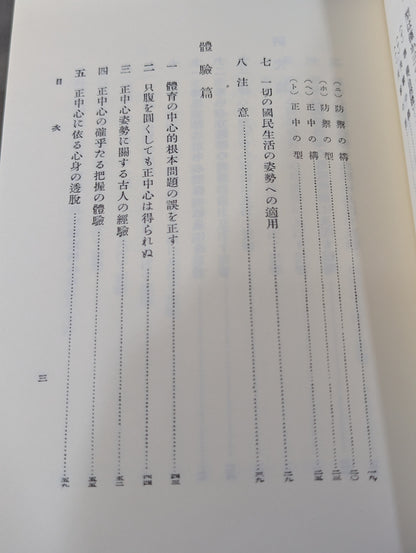 (ニ) 防禦の構……………一九
(ホ) 防禦の型……………二〇
(ヘ) 正中の構……………二三
(ト) 正中の型……………二五
七 一切の國民生活の姿勢への適用……………二九
八 注意……………三九
體驗篇
一 體育の中心的根本問題の誤を正す……………四三
二 只腹を圓くしても正中心は得られぬ……………四四
三 正中心姿勢に關する古人の經驗……………五二
四 正中心の確乎たる把握の體驗……………五五
五 正中心に依る心身の透脫……………五九
目次
三